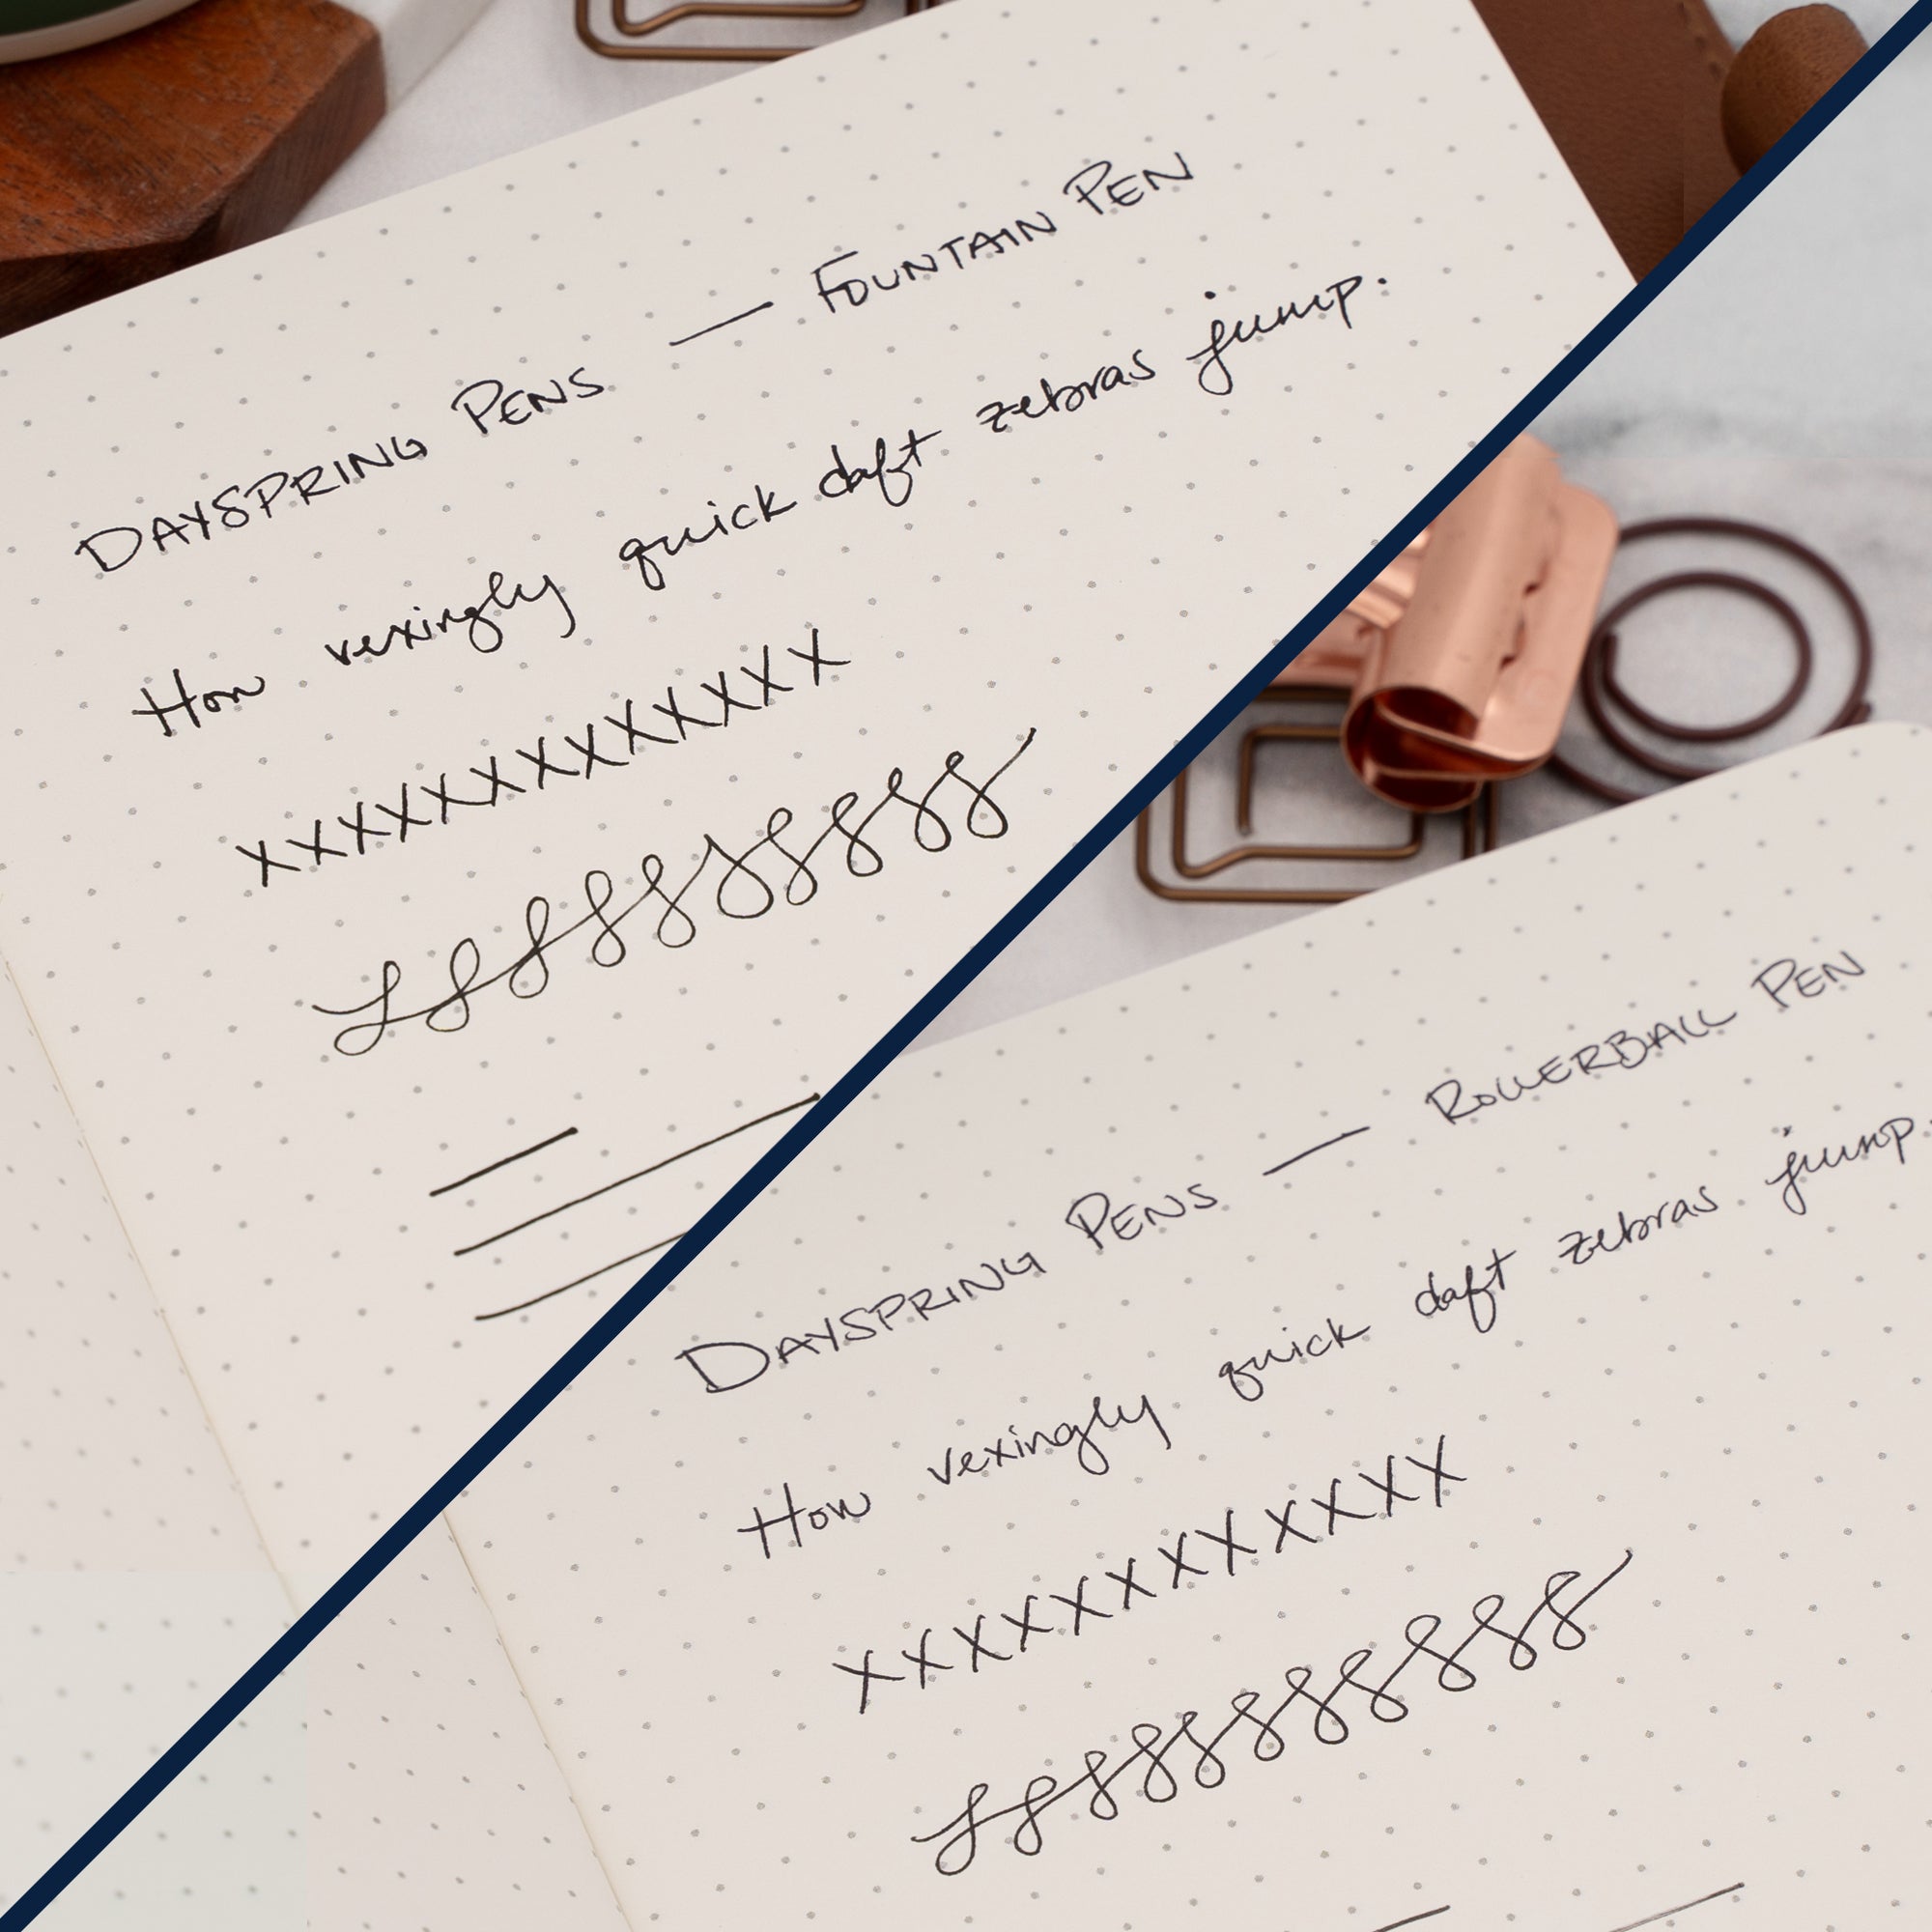 DAYSPRING PENS — FOUNTAIN PEN
How vexingly quick daft zebras jump.
XXXXXXXXXXXXX
DAYSPRING PENS — ROLLERBALL PEN
How vexingly quick daft zebras jump.
XXXXXXXXXXXX